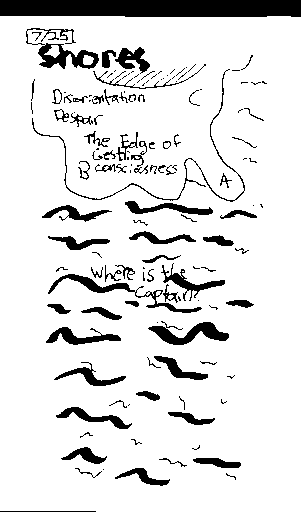 7/25
Shores
Disorientation
Despair
C
The Edge of
Gestling
B consciousness
A
Where is the
Captain?